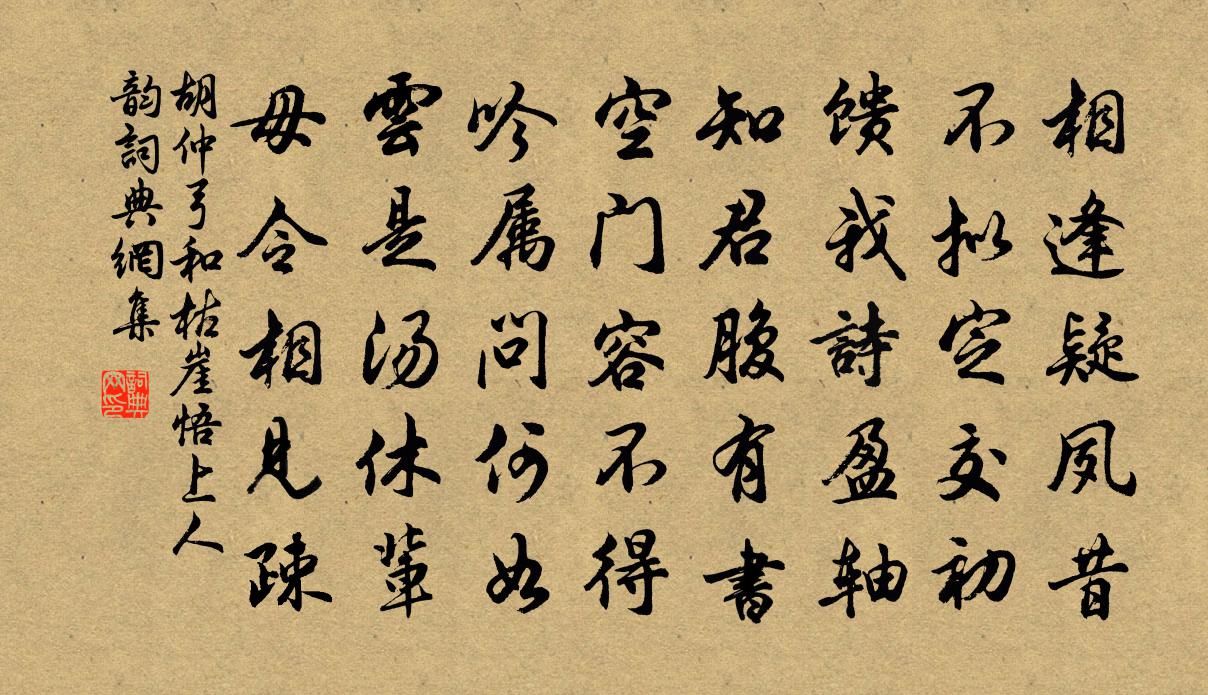 相逢疑夙昔
不拟定交初
馈我詩盈轴
知君腹有書
空门容不得
吟属问何如
雲是汤休辈
毋令相见疎
胡仲弓和枯崖悟上人
韵詞典網集
詞典網印